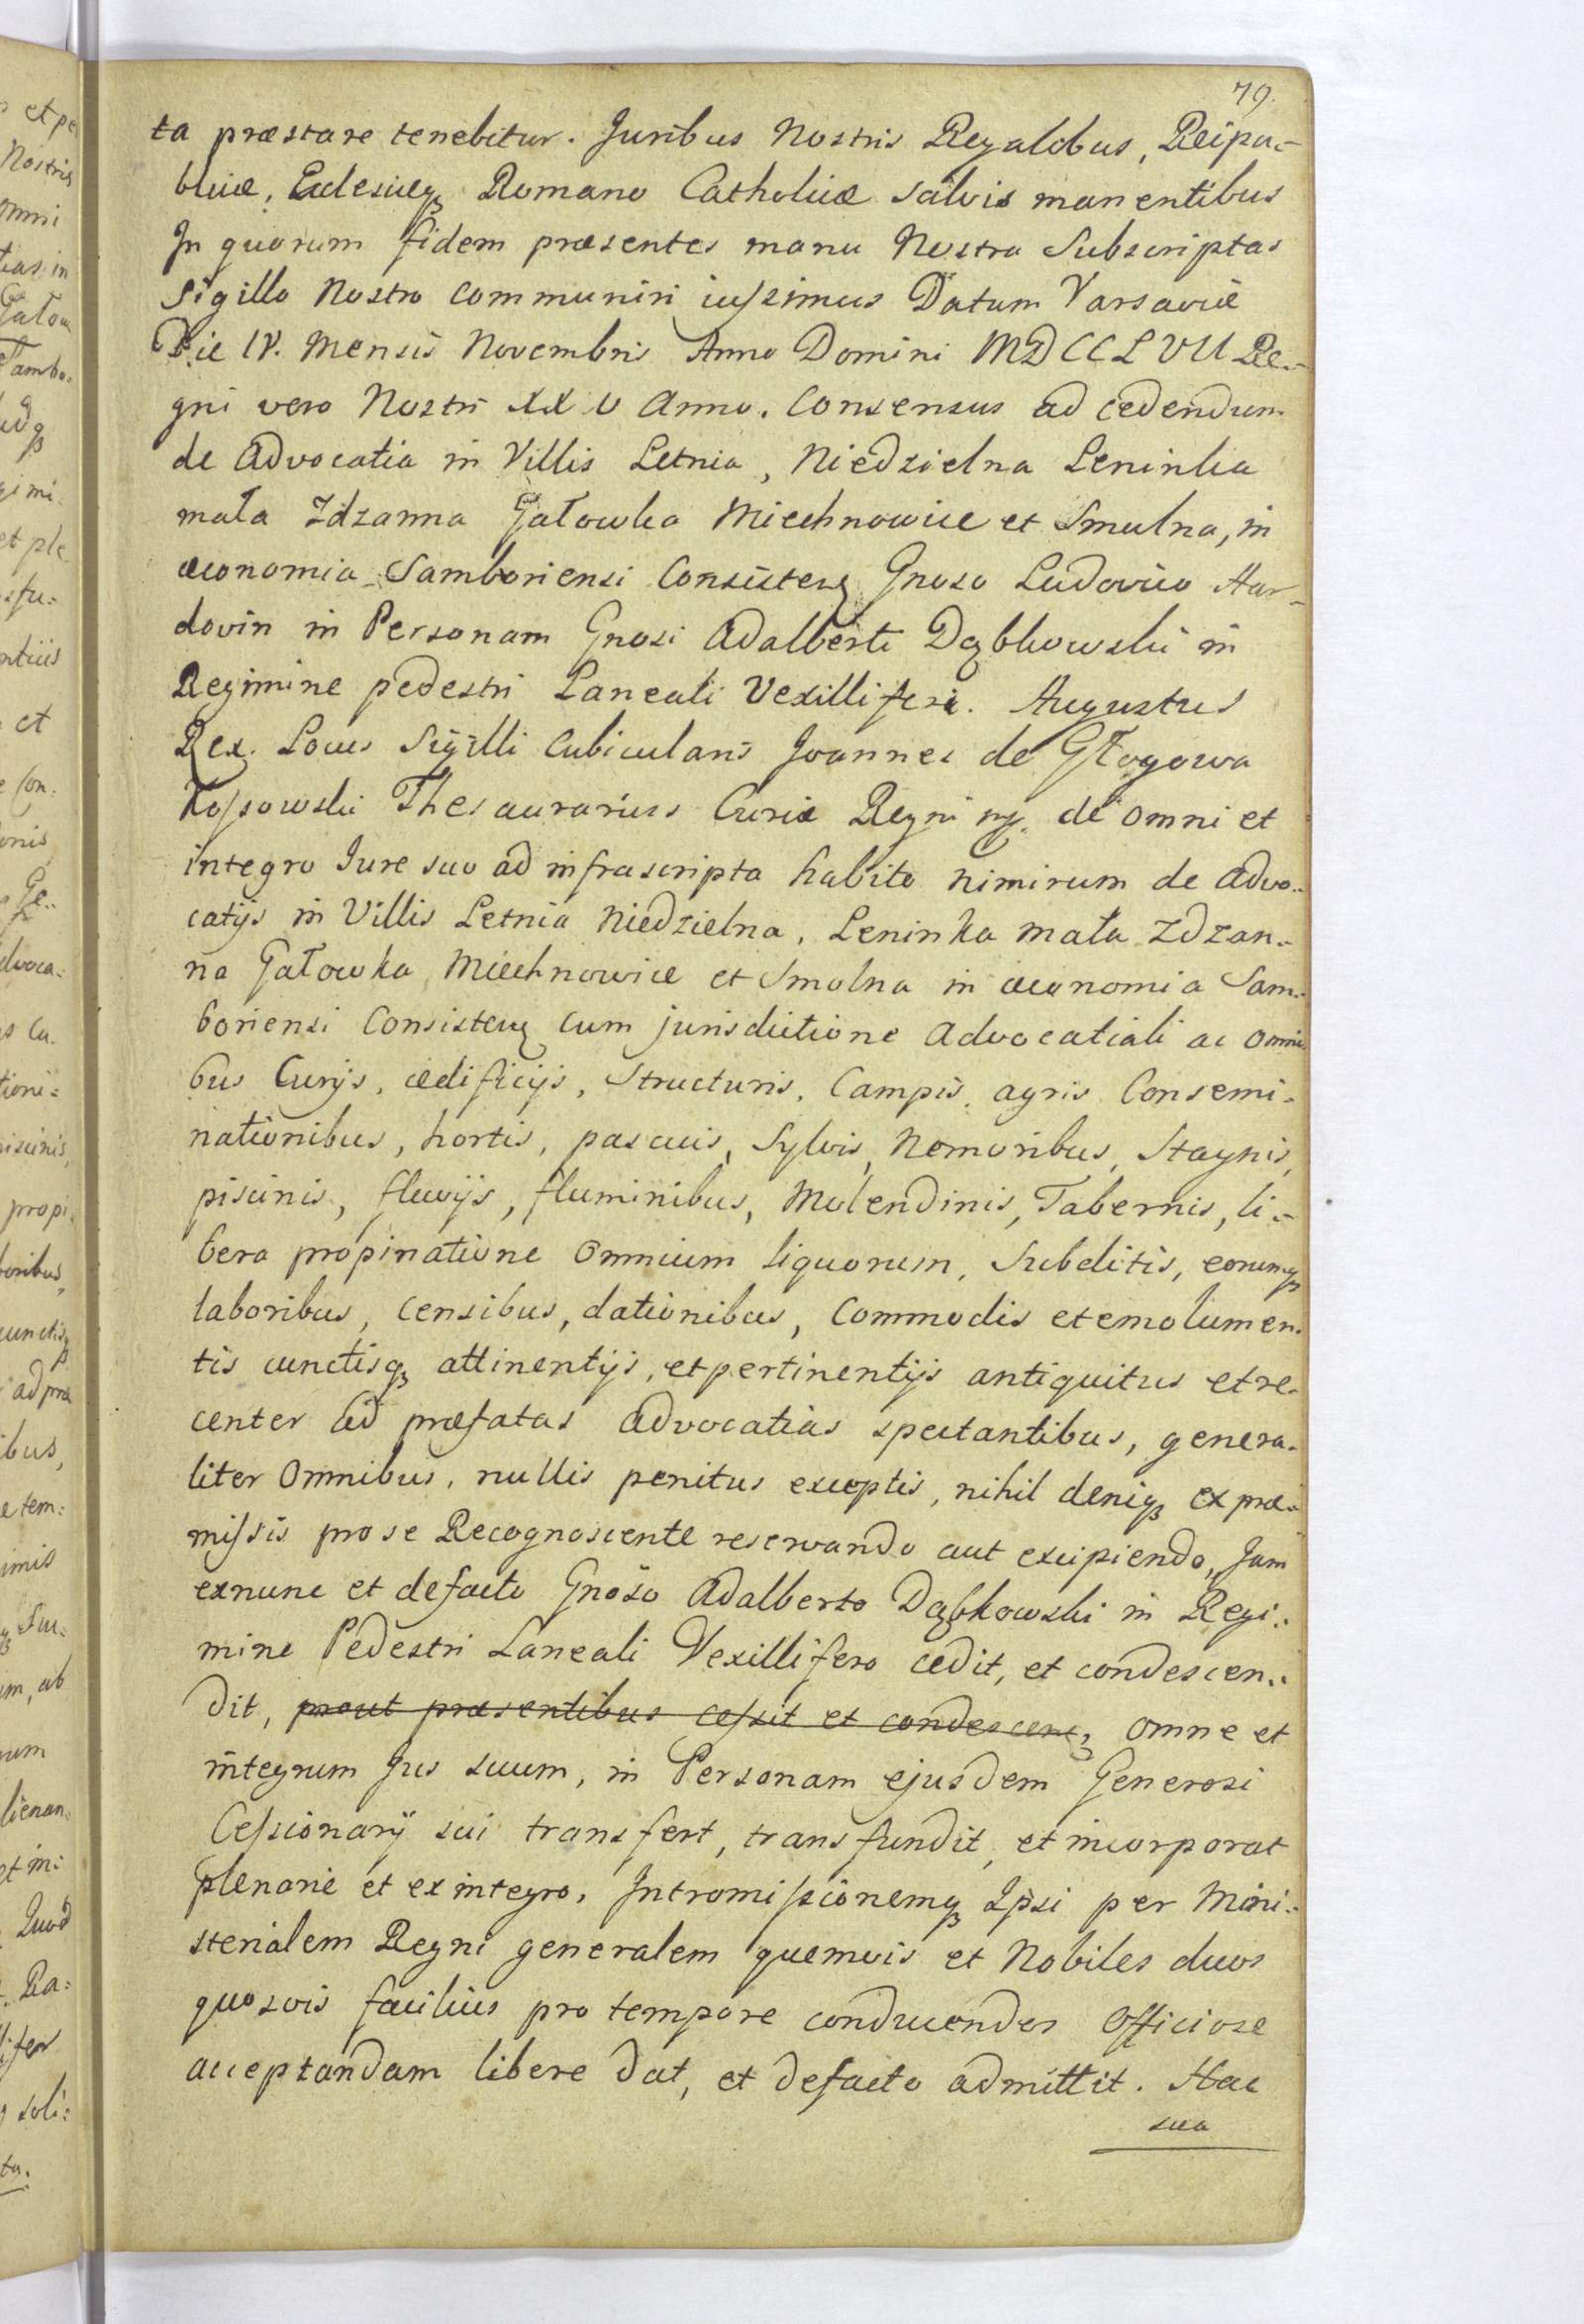 79.
ta præstare tenebitur. Juribus Nostris Regalibus, Reipu-
blicæ, Ecclesiæq3 Romano Catholicæ salvis manentibus
In quorum fidem præsentes manu Nostra Subscriptas
Sigillo Nostro communiri iussimus Datum Varsaviæ
Die IV. Mensis Novembris Anno Domini MDCCLVII Re-
gni vero Nostri XXV Anno. Consensus ad cedendum
de Advocatia in Villis Letnia, Niedzielna Leninka
mała Zdzanna Gałowka Miechnowice et Smulna, in
œconomia Samboriensi Consisten3 Gnoso Ludovico Har-
dovin in Personam Gnosi Adalberti Dąbkowski in
Regimine pedestri Laneali Vexilliferi. Augustus
Rex. Locus Sigilli Cubicularis Joannes de Głogowa
Kossowski Thesaurarius Curiæ Regni mp. de omni et
integro Jure suo ad infrascripta habito nimirum de advo-
catijs in Villis Letnia Niedzielna, Leninka mała Zdzan-
na Gałowka Miechnowice et Smolna in œconomia Sam-
boriensi Consisten3 cum jurisdictione advocatiali ac omni-
bus Curijs, ædificijs, Structuris, Campis, agris Consemi-
nationibus, hortis, pascuis, Sylvis, Nemoribus, Stagnis,
piscinis, fluvijs, fluminibus, Molendinis, Tabernis, li-
bera propinatione omnium liquorum, Subditis, eorumq3
laboribus, censibus, dationibus, commodis et emolumen-
tis cunctisq3 attinentijs, et pertinentijs antiquitus et re-
center ad præfatas advocatias spectantibus, genera-
liter omnibus, nullis penitus exceptis, nihil deniq3 ex præ-
missis pro se Recognoscente reservando aut excipiendo, Jam
exnunc et defacto Gnoso Adalberto Dąbkowski in Regi-
mine Pedestri Laneali Vexillifero cedit, et condescen-
dit, prout præsentibus cessit et condescen3, omne et
integrum Jus suum, in Personam ejusdem Generosi
Cessionarij sui transfert, transfundit, et incorporat
plenarie et ex integro, Intromissionemq3 Ipsi per Mini-
sterialem Regni generalem quemvis et Nobiles duos
quosvis facilius pro tempore conducendos officiose
acceptandam libere dat, et defacto admittit. Hac
sua